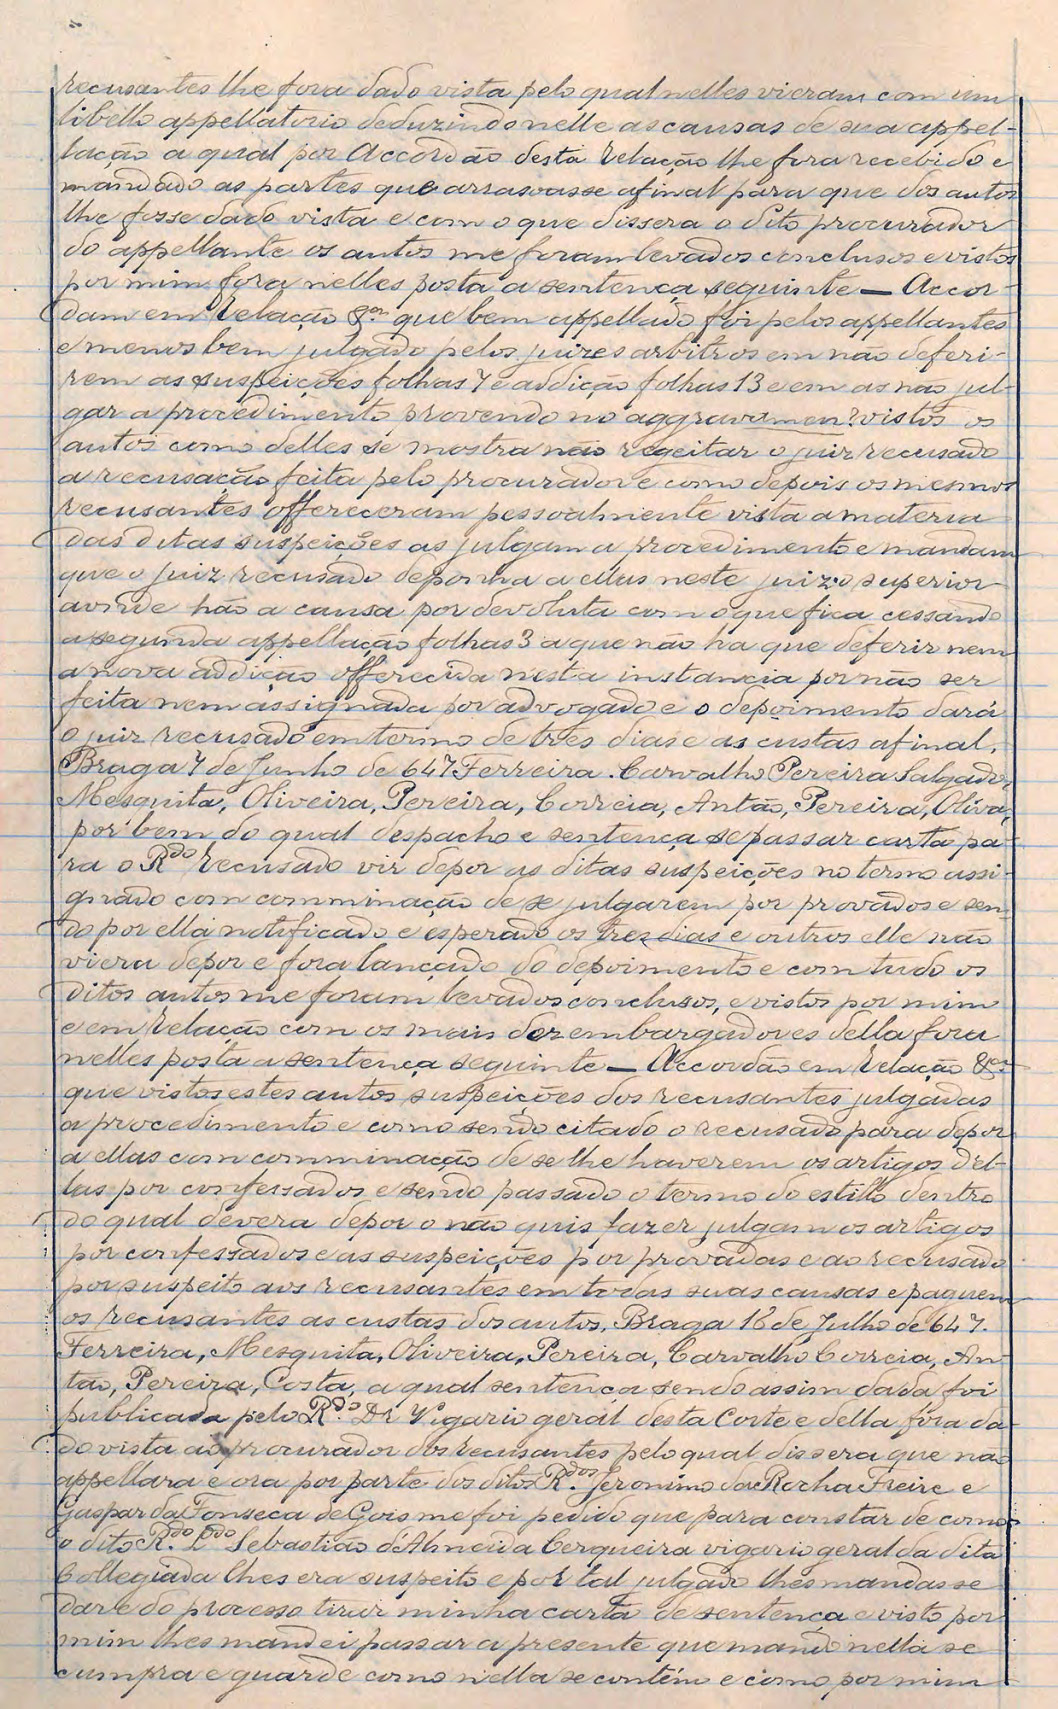 recusantes lhe fora dado vista pelo qual nelles vieram com um
libello appellatorio deduzindo nelle as causas de sua appel-
lação a qual por Accordão desta Relação lhe fora recebido e
mandado as partes que arrasoasse afinal para que dos autos
lhe fosse dado vista e com o que dissera o dito procurador
do appellante os autos me foram levados conclusos e vistos
por mim fora nelles posta a sentença seguinte — Accor-
dam em Relação &ª que bem appellado foi pelos appellantes
e menos bem julgado pelos juizes arbitros em não deferi-
rem as suspeições folhas 7 e addição folhas 13 e em as não jul-
gar a procedimento provendo no aggravamen? vistos os
autos como delles se mostra não regeitar o juiz recusado
a recusação feita pelo procurador e como depois os mesmos
recusantes offereceram pessoalmente vista a materia
das ditas suspeições as julgam a procedimento e mandam
que o juiz recusado deponha a ellas neste juizo superior
aonde hão a causa por devoluta com o que fica cessando
a segunda appellação folhas 3 a que não ha que deferir nem
a nova addição offerecida nesta instancia por não ser
feita nem assignada por advogado e o depoimento dará
o juiz recusado em termo de tres dias e as custas afinal.
Braga 7 de Junho de 647 Ferreira. Carvalho Pereira Salgado,
Mesquita, Oliveira, Pereira, Correia, Antão, Pereira, Oliva,
por bem do qual despacho e sentença se passar carta pa-
ra o Rdo recusado vir depor as ditas suspeições no termo assi-
gnado com comminação de se julgarem por provados e sen-
do por ella notificado e esperado os tres dias e outros elle não
viera depor e fora lançado do depoimento e com tudo os
ditos autos me foram levados conclusos, e vistos por mim
e em Relação com os mais dezembargadores della fora
nelles posta a sentença seguinte — Accordão em Relação &ª
que vistos estes autos suspeições dos recusantes julgadas
a procedimento e como sendo citado o recusado para depor
a ellas com comminação de se lhe haverem os artigos del-
las por confessados e sendo passado o termo do estillo dentro
do qual devera depor o não quis fazer julgam os artigos
por confessados e as suspeições por provadas e ao recusado
por suspeito aos recusantes em todas suas causas e paguem
os recusantes as custas dos autos. Braga 16 de Julho de 647.
Ferreira, Mesquita, Oliveira, Pereira, Carvalho Correia, An-
tão, Pereira, Costa, a qual sentença sendo assim dada foi
publicada pelo Rdo. Dr Vigario geral desta Corte e della fora da-
do vista ao procurador dos recusantes pelo qual dissera que não
appellara e ora por parte dos ditos Rdos. Jeronimo da Rocha Freire e
Gaspar da Fonseca de Gois me foi pedido que para constar de como
o dito Rdo. Ldo Sebastião d'Almeida Cerqueira vigario geral da dita
Collegiada lhes era suspeito e por tal julgado lhes mandasse
dar e do processo tirar minha carta de sentença e visto por
mim lhes mandei passar a presente que mando nella se
cumpra e guarde como nella se contém e como por mim